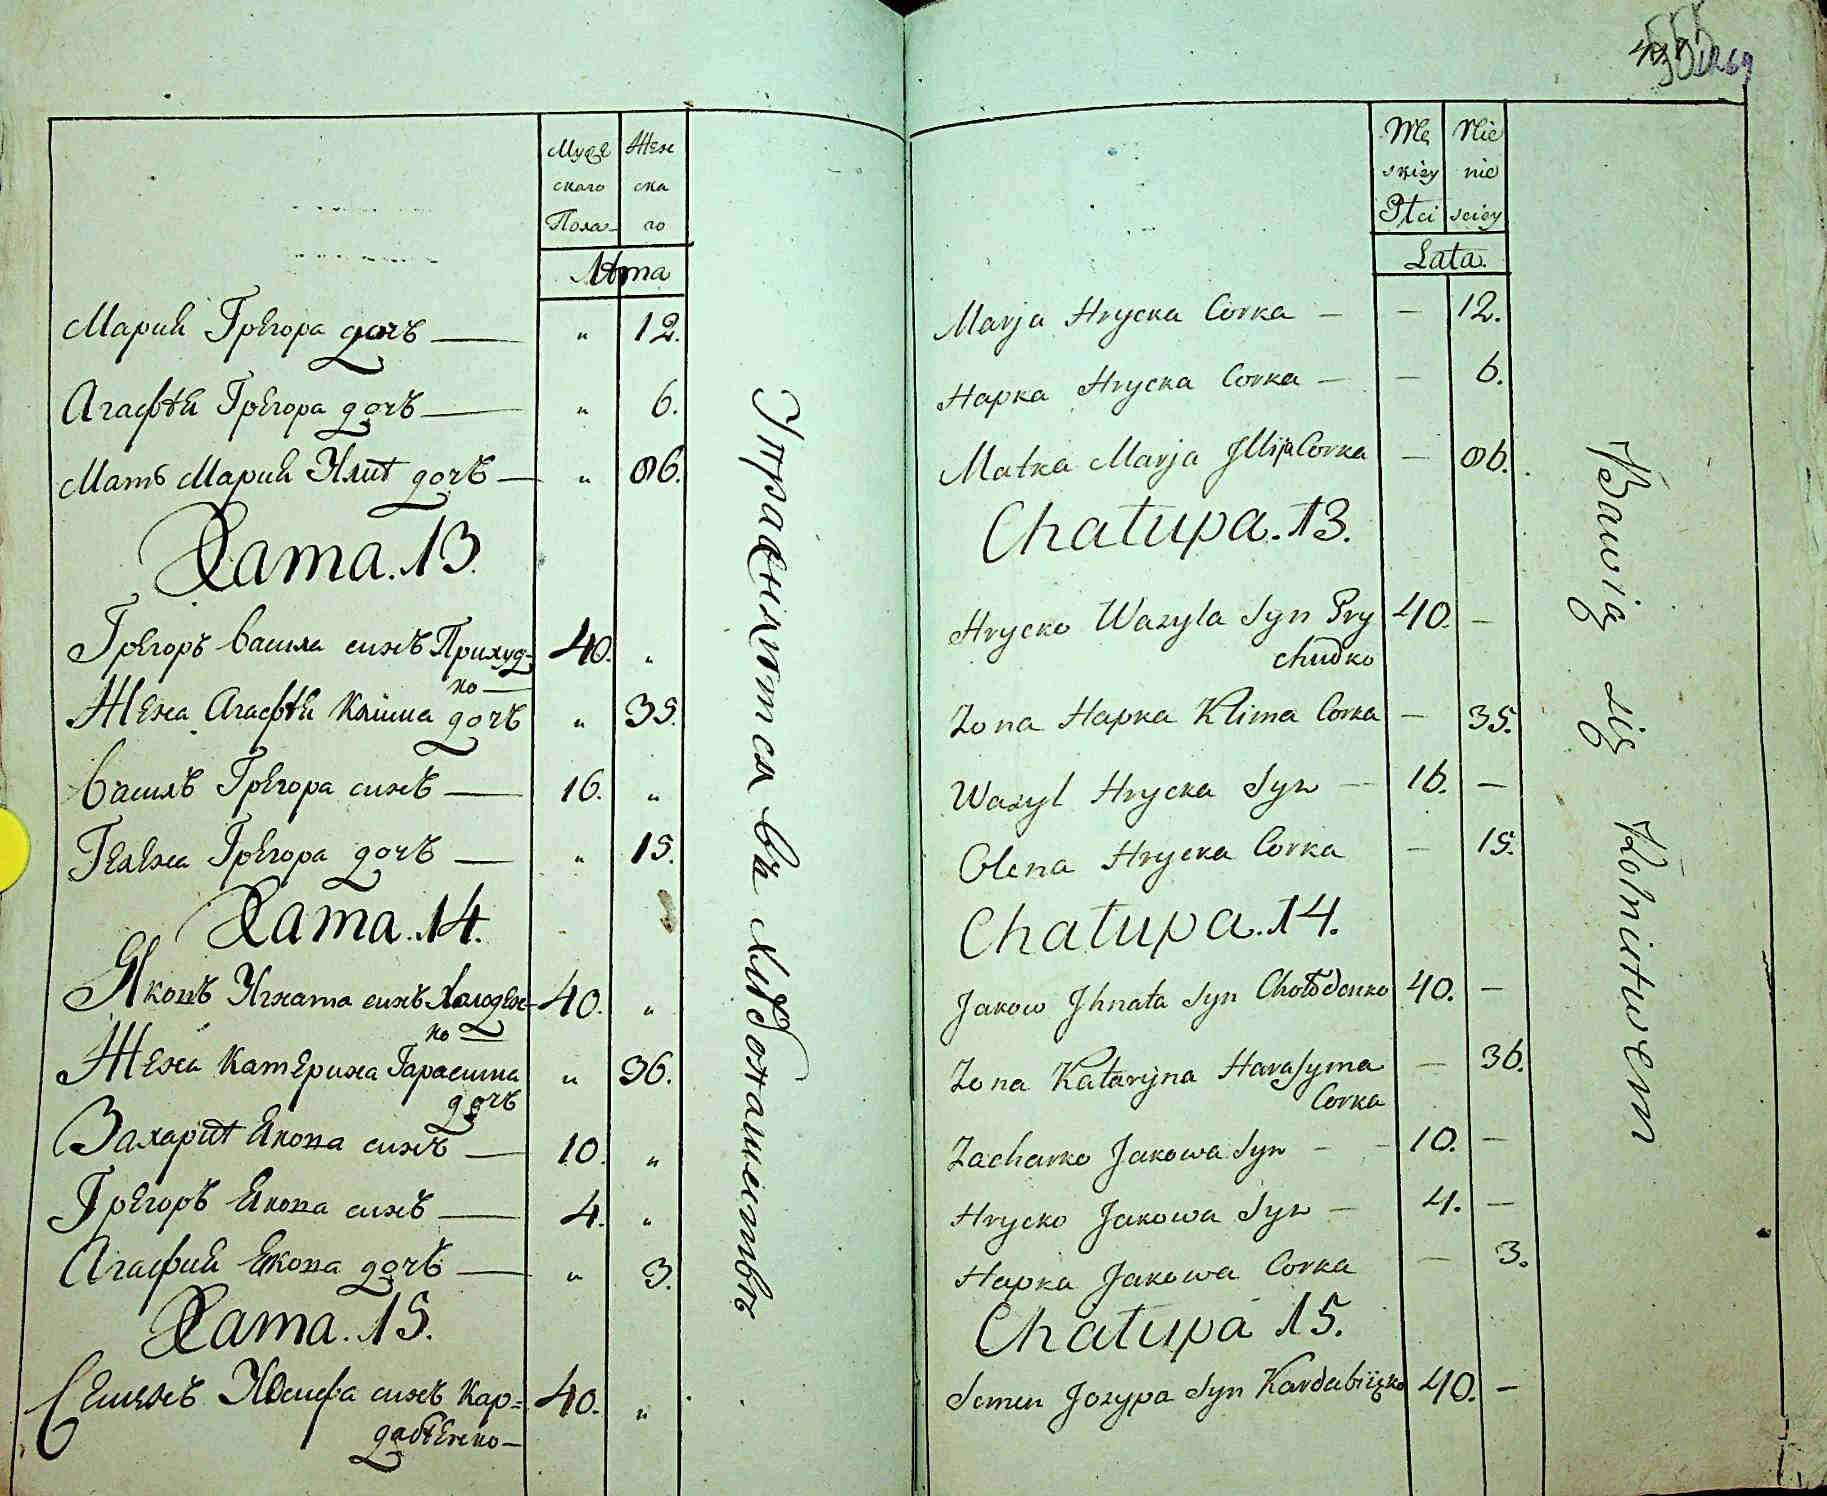 Муже Жен
скаго ска
Пола го
Лѣта
Марий Грегора дочъ — " 12.
Агафѣй Грегора дочъ — " 6.
Мать Марий Илиѣ дочъ — " 86.
Хата. 13.
Грегоръ Василя синъ Прихуд= 40. "
ко —
Жена Агафѣй Клима дочъ " 35.
Василъ Грегора синъ — 16. "
Гелена Грегора дочъ — " 15.
Хата. 14.
Яковъ Игната синъ Холоден= 40. "
ко
Жена Катерина Гарасима " 36.
дочъ
Захариѣ Якова синъ — 10. "
Грегоръ Якова синъ — 4. "
Агафий Якова дочъ — " 3.
Хата. 15.
Семенъ Иосифа синъ Кар= 40. "
дабенко —
Упражняются въ хлѣбопашествѣ
555 1269
Mę Nie
skiey nie
Płci sciey
Lata.
Marja Hrycka Corka — — 12.
Hapka Hrycka Corka — — 6.
Matka Marja Illija Corka — 86.
Chałupa. 13.
Hrycko Wasyla Syn Pry 40. —
chudko
Zona Hapka Klima Corka — 35.
Wasyl Hrycka Syn — 16. —
Olena Hrycka Corka — 15.
Chałupa. 14.
Jakow Jhnata Syn Chołodenko 40. —
Zona Kataryna Harasyma — 36.
Corka
Zacharko Jakowa Syn — 10. —
Hrycko Jakowa Syn — 4. —
Hapka Jakowa Corka — 3.
Chałupa 15.
Semen Jozypa Syn 40. —
Bawią się Rolnictwem